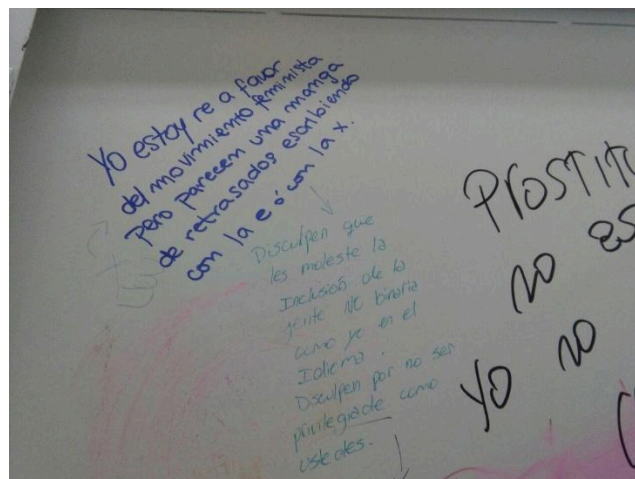 Yo estoy re a favor
del movimiento feminista
pero parecen una manga
de retrasados escribiendo
con la e ó con la x.
Disculpen que
les moleste la
Inclusión de la
gente NC binaria
como yo en el
Idioma.
Disculpen por no ser
privilegiade como
ustedes.
PROSTITU
NO ES
YO NO